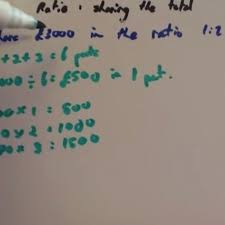 Ratio : sharing the total
£3000 in the ratio 1:2
+2+3 = 6 parts
000 ÷ 6 = £500 in 1 part.
0 x 1 = 500
00 x 2 = 1000
00 x 3 = 1500